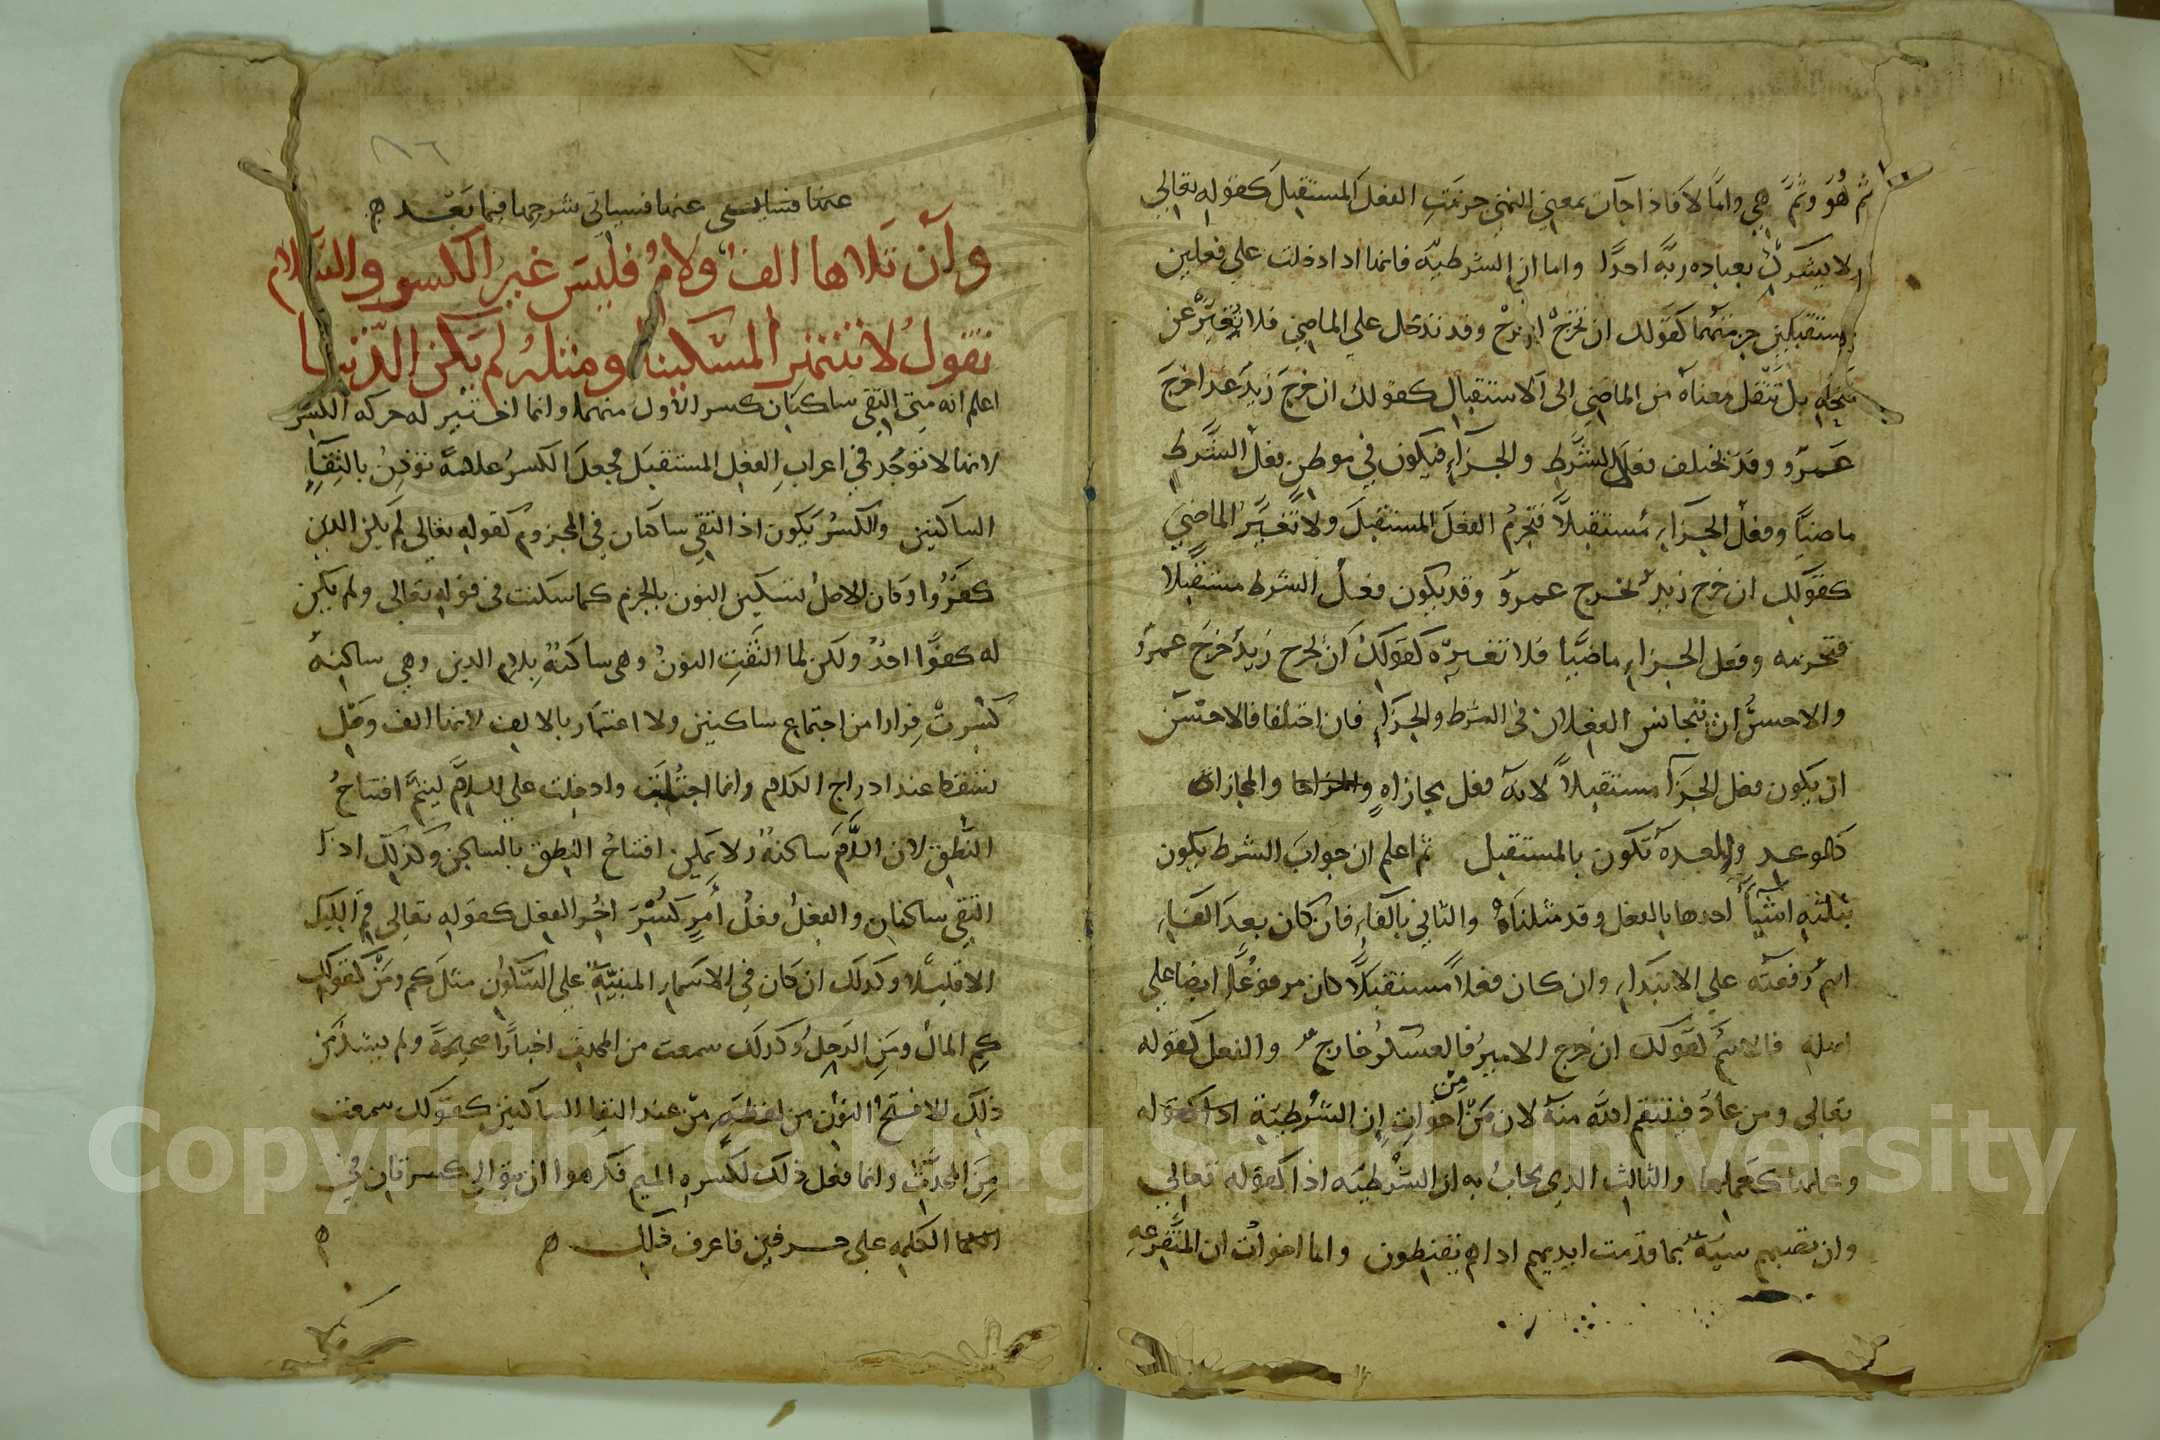 ثم هُوَ وثُمَّ هي واما لا فاذا جآت بمعنى النهي جزمَتِ الفعل المستقبل كقوله تعالى
ولا يشرك بعباده ربه احدًا واما ان الشرطيّه فانها اذا دخلت على فعلين
مستقبلين جزمتهما كقولك ان تخرجْ اخرجْ وقد تدخل على الماضي فلا تُغيّرْ عن
فتحه بل تَنْقل معناه من الماضي الى الاستقبال كقولك ان خرجَ زيدٌ غدا خرجَ
عَمرٌو وقد يختلف فعلا الشَّرط والجزآءِ فيكون في موطنٍ فعلُ الشَّرطِ
ماضيًا وفعلُ الجزآءِ مُستقبلاً فتجزمُ الفعلَ المستقبلَ ولا تُغيّرُ الماضيَ
كقولك ان خرج زيدٌ يخرج عمرٌو وقد يكون فعلُ الشرط مستقبلًا
فتجزمه وفعل الجزاءِ ماضيًا فلا تغيرّه كقولك ان يخرج زيدٌ خرَجَ عمرٌو
والاحسنُ ان يتجانس الفعلان في الشرط والجزآءِ فان اختلفا فالاحسَن
ان يكون فعل الجزآ مستقبلاً لانه فعل يجازاه والمجازاة
كالوعد والعدة تكون بالمستقبل ثم اعلم ان جوابَ الشرط يكون
بثلثه اشيآ احدها بالفعل وقد مثلناهُ والثاني بالفآءِ فان كان بعدَ الفاءِ
اسم رفعته على الابتداءِ وان كان فعلاً مستقبلًا كان مرفوعًا ايضا على
اصله فالاسمُ كقولك ان خرج الاميرُ فالعسكرُ خارجٌ والفعل كقوله
تعالى ومن عادَ فينتقم الله منه لان مَنْ مِنْ اخواتِ اِن الشرطيّة
وعلمها كعملها والثالث الذي يجابُ به ان الشرطيّه اذا كقوله تعالى
وان تصبهم سيّةٌ بما قدمت ايديهم اذا هم يقنطون واما اخواتُ ان المتفرعهِ
٨٦
عنها فسياتى شرحها فيما بَعْد
وان تلاها الفٌ ولامُ فليسَ غيرَ الكسر والسلام
تقول لا تنتهر المسكينا ومثلهُ لم يكن الذينا
اعلم انه متى التقى ساكنان كسر الاول منهما وانما اختير له حركه الكسر
لانها لا توجَد في اعرابِ الفعل المستقبل فجعل الكسرُ علامةً تؤذنُ بالتقآءِ
الساكنين والكسرُ يكون اذا التقى ساكنان في المجزوم كقوله تعالى لم يكن الذين
كفَرُوا وكان الاصلُ تسكين النون بالجزم كما سكنت في قوله تعالى ولم يكن
له كفوًا احدٌ ولكن لما التَقَتِ النونُ وهي ساكنهٌ بِلامِ الذين وهي ساكنهٌ
كُسِرتْ فرارا من اجتماع ساكنين ولا اعتمارَ بالالف لانها الف وصْل
تسقط عند ادراج الكلام وانما اجتُلِبَت وادخلت على اللامِ ليتمَّ افتتاحُ
النطق لان اللاَّمَ ساكنهٌ ولا يمكن افتتاحُ النطق بالساكن وكذلك اذا
التقى ساكنان والفعلُ فعلُ أمرٍ كُسِرَ اخرُ الفعل كقوله تعالى قُمِ الليل
الا قليلًا وكذلك ان كان في الاسمآءِ المبنيّة على السّكون مثل كم ومَنْ كقولك
كمِ المالُ ومَنِ الرجلُ وكذلك سمعت من المحدث اخبارًا صحيحةً ولم يشذّ عن
ذلك الا فتحُ النون من لفظه مِنْ عند التقا الساكنين كقولك سمعت
مِنَ المحدّثِ وانما فعل ذلك لكسرهِ الميم فكرهوا ان يتوالى كسرتان في
الكلمه على حرفين فاعرف ذلك